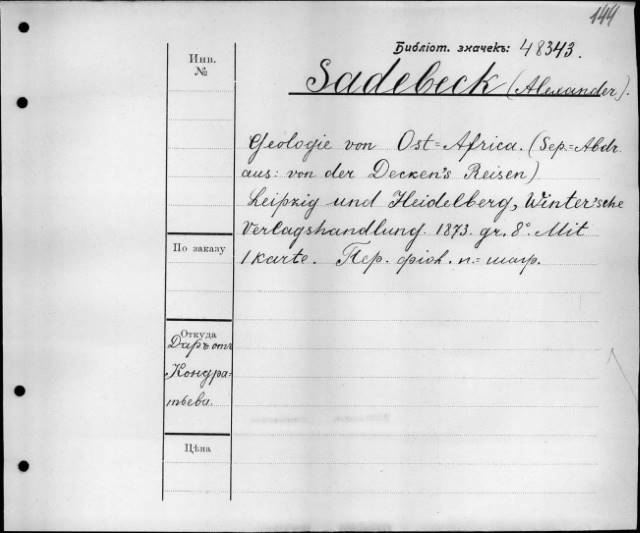 144
Библіот. значекъ: 48343.
Инв.
№
Sadebeck (Alexander).
Geologie von Ost=Africa. (Sep.=Abdr.
aus: von der Decken's Reisen)
Leipzig und Heidelberg, Winter'sche
Verlagshandlung. 1873. gr. 8°. Mit
1 Karte. Пер. фіол. п.=шагр.
По заказу
Откуда
Даръ отъ
Кондра=
тьева.
Цѣна